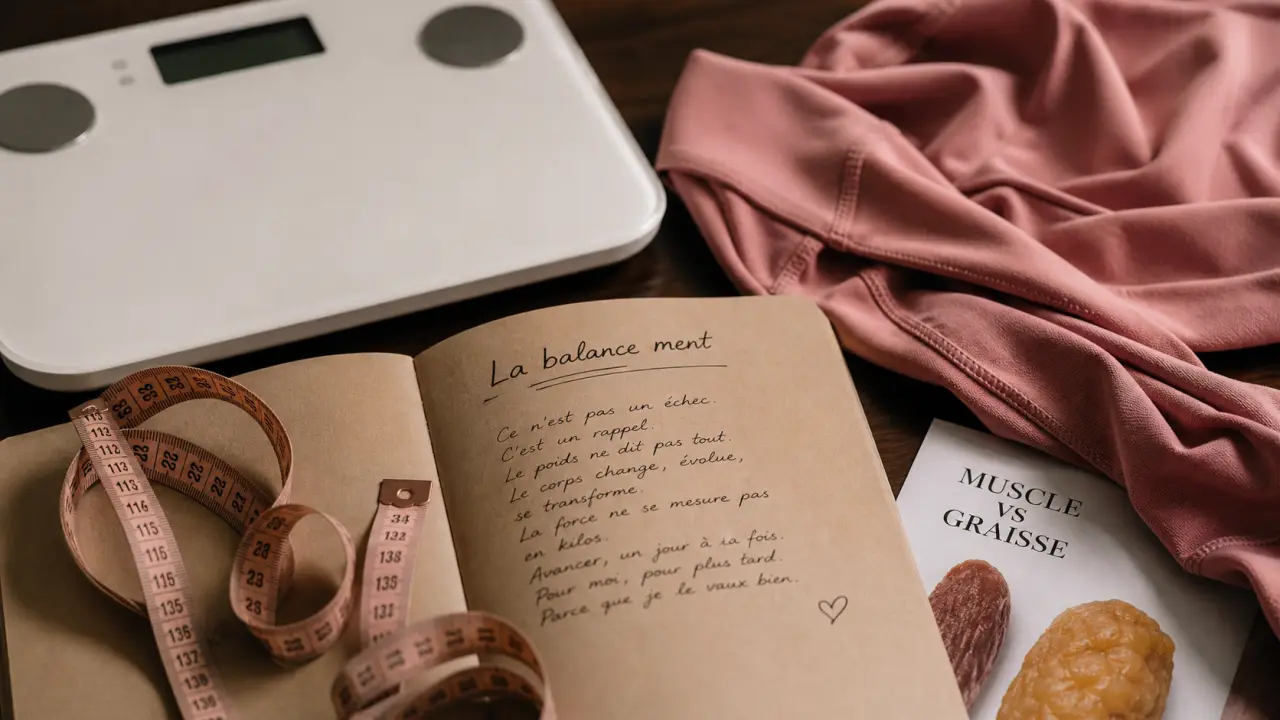 La balance ment
Ce n'est pas un échec.
C'est un rappel.
Le poids ne dit pas tout.
Le corps change, évolue,
se transforme.
La force ne se mesure pas
en kilos.
Avancer, un jour à la fois.
Pour moi, pour plus tard.
Parce que je le vaux bien.
MUSCLE
VS
GRAISSE
112
113
116
115
116
115
135
136
137
34
138